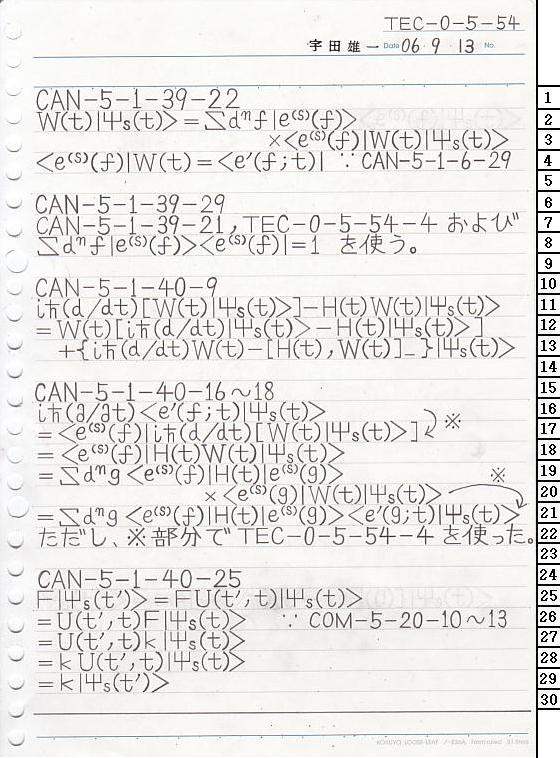 TEC-0-5-54
宇田雄一 Date 06・9・13 No.
CAN-5-1-39-22
W(t)|Ψs(t)>=∑dⁿf|e⁽ˢ⁾(f)>
×<e⁽ˢ⁾(f)|W(t)|Ψs(t)>
<e⁽ˢ⁾(f)|W(t)=<e'(f;t)| ∵ CAN-5-1-6-29
CAN-5-1-39-29
CAN-5-1-39-21,TEC-0-5-54-4 および
∑dⁿf|e⁽ˢ⁾(f)><e⁽ˢ⁾(f)|=1 を使う。
CAN-5-1-40-9
iħ(d/dt)[W(t)|Ψs(t)>]-H(t)W(t)|Ψs(t)>
=W(t)[iħ(d/dt)|Ψs(t)>-H(t)|Ψs(t)>]
+{iħ(d/dt)W(t)-[H(t),W(t)]_}|Ψs(t)>
CAN-5-1-40-16～18
iħ(∂/∂t)<e'(f;t)|Ψs(t)>
=<e⁽ˢ⁾(f)|iħ(d/dt)[W(t)|Ψs(t)>] ※
=<e⁽ˢ⁾(f)|H(t)W(t)|Ψs(t)>
=∑dⁿg<e⁽ˢ⁾(f)|H(t)|e⁽ˢ⁾(g)> ※
×<e⁽ˢ⁾(g)|W(t)|Ψs(t)>
=∑dⁿg<e⁽ˢ⁾(f)|H(t)|e⁽ˢ⁾(g)><e'(g;t)|Ψs(t)>
ただし、※部分でTEC-0-5-54-4を使った。
CAN-5-1-40-25
F|Ψs(t')>=FU(t',t)|Ψs(t)>
=U(t',t)F|Ψs(t)> ∵ COM-5-20-10～13
=U(t',t)k|Ψs(t)>
=kU(t',t)|Ψs(t)>
=k|Ψs(t')>
KOKUYO LOOSE-LEAF ノ-836A 7mm ruled 31 lines
1
2
3
4
5
6
7
8
9
10
11
12
13
14
15
16
17
18
19
20
21
22
23
24
25
26
27
28
29
30